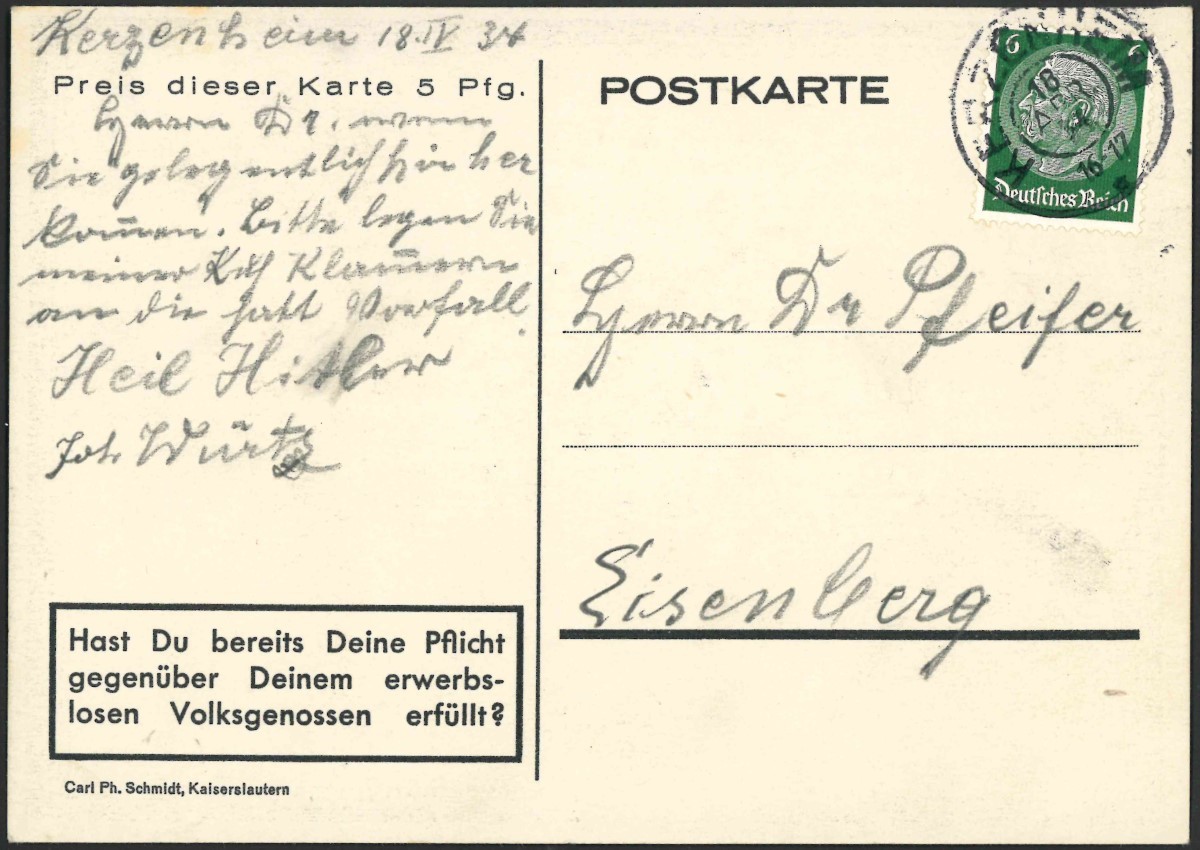 Kerzenheim 18. IV 34
Preis dieser Karte 5 Pfg.
Herrn Dr. wenn
Sie gelegentlich hie her
kom̄en. Bitte legen Sie
meiner Kuh Klam̄ern
an die hatt Vorfall.
Heil Hitler
Joh. Würtz
Hast Du bereits Deine Pflicht
gegenüber Deinem erwerbs-
losen Volksgenossen erfüllt?
Carl Ph. Schmidt, Kaiserslautern
POSTKARTE
6 6
Deutsches Reich
KERZENHEIM
18
APR
16-17
Herrn Dr Pfeifer
Eisenberg